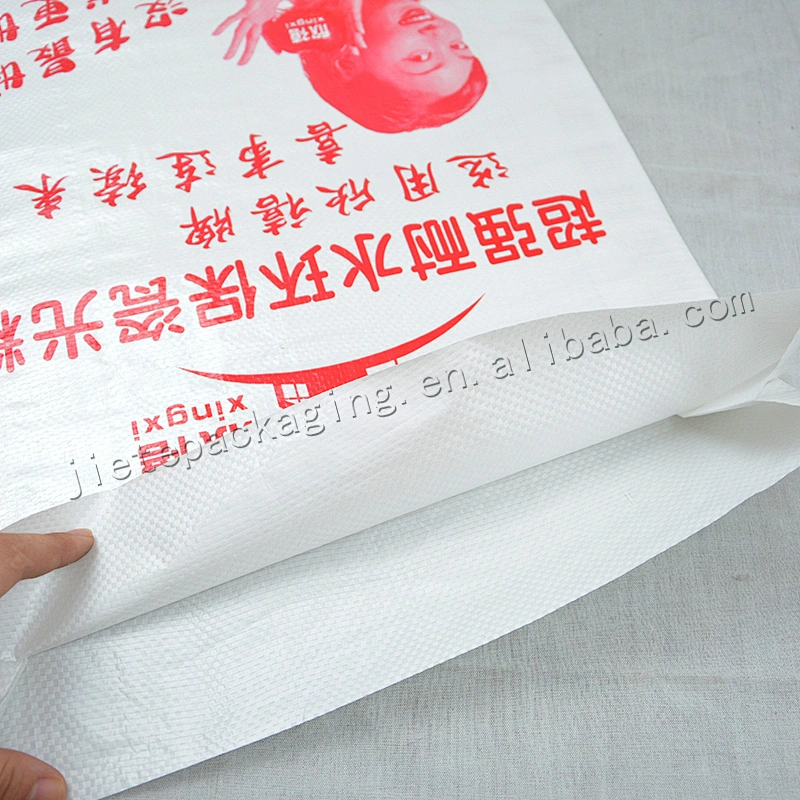 xingxi
超强耐水环保瓷光
选用欣禧牌
喜事连续来
欣禧
xingxi
jietepackaging.en.alibaba.com